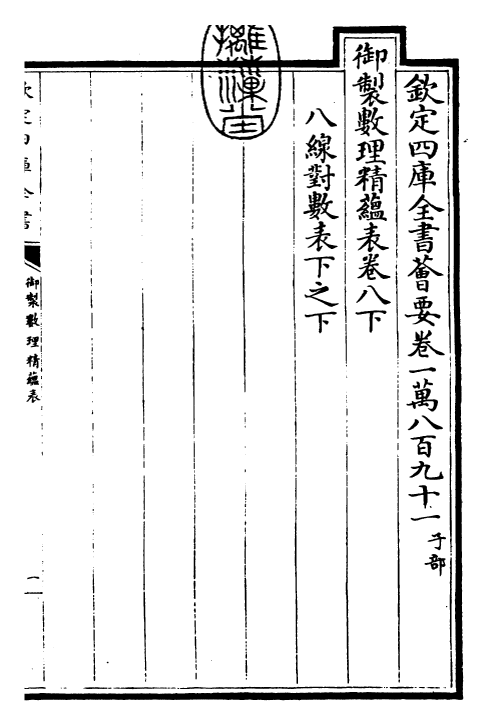 欽定四庫全書薈要卷一萬八百九十一 子部
御製數理精蘊表卷八下
八線對數表下之下
欽定四庫全書
御製數理精蘊表
一